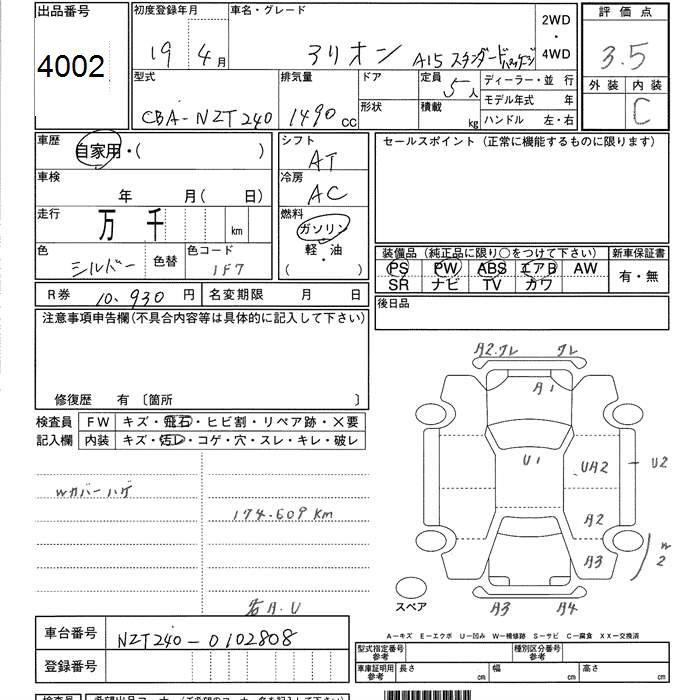 出品番号
4002
初度登録年月
19 4月
車名・グレード
アリオン A15 スタンダードパッケージ
2WD
・
4WD
評価点
3.5
型式
CBA-NZT240
排気量
1490cc
ドア
形状
定員
5人
積載
kg
ディーラー・並 行
モデル年式 年
ハンドル 左・右
外装 内装
C
車歴
自家用・( )
シフト
AT
セールスポイント (正常に機能するものに限ります)
車検
年 月( 日)
冷房
AC
走行
万 千 km
燃料
ガソリン
軽・油
( )
色
シルバー
色替
色コード
1F7
装備品 (純正品に限り○をつけて下さい)
新車保証書
PS PW ABS エアB AW
SR ナビ TV カワ
有・無
R券 10,930 円
名変期限 月 日
後日品
注意事項申告欄(不具合内容等は具体的に記入して下さい)
修復歴 有 〔箇所 〕
検査員
記入欄
FW キズ・飛石・ヒビ割・リペア跡・×要
内装 キズ・汚レ・コゲ・穴・スレ・キレ・破レ
Wカバーハゲ
174.609 km
若A.U
A2.グレ グレ
A1
U1
UA2
U2
A2
A3
W
2
A3 A4
スペア
A-キズ E-エクボ U-凹み W-補修跡 S-サビ C-腐食 XX-交換済
車台番号 NZT240-0102808
登録番号
型式指定番号
参考
種別区分番号
参考
車庫証明用
参考
長さ cm
幅 cm
高さ cm